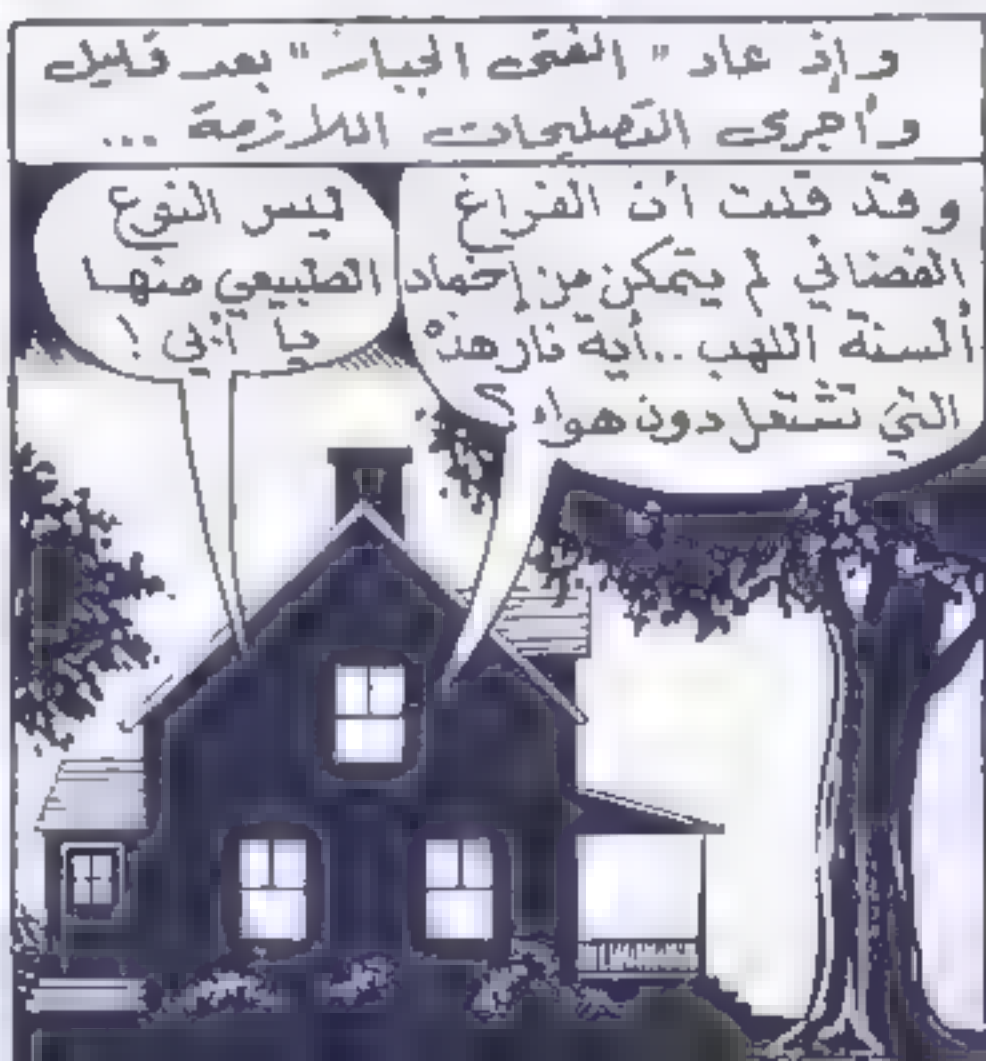 وإذ عاد "الفتى الجبار" بعد قليل
وأجرى التصليحات اللازمة ...
وقد قلت أن الفراغ
الفضائي لم يتمكن من إخماد
ألسنة اللهب .. أية نار هذه
التي تشتعل دون هواء ؟
ليس النوع
الطبيعي منها
يا أبي !